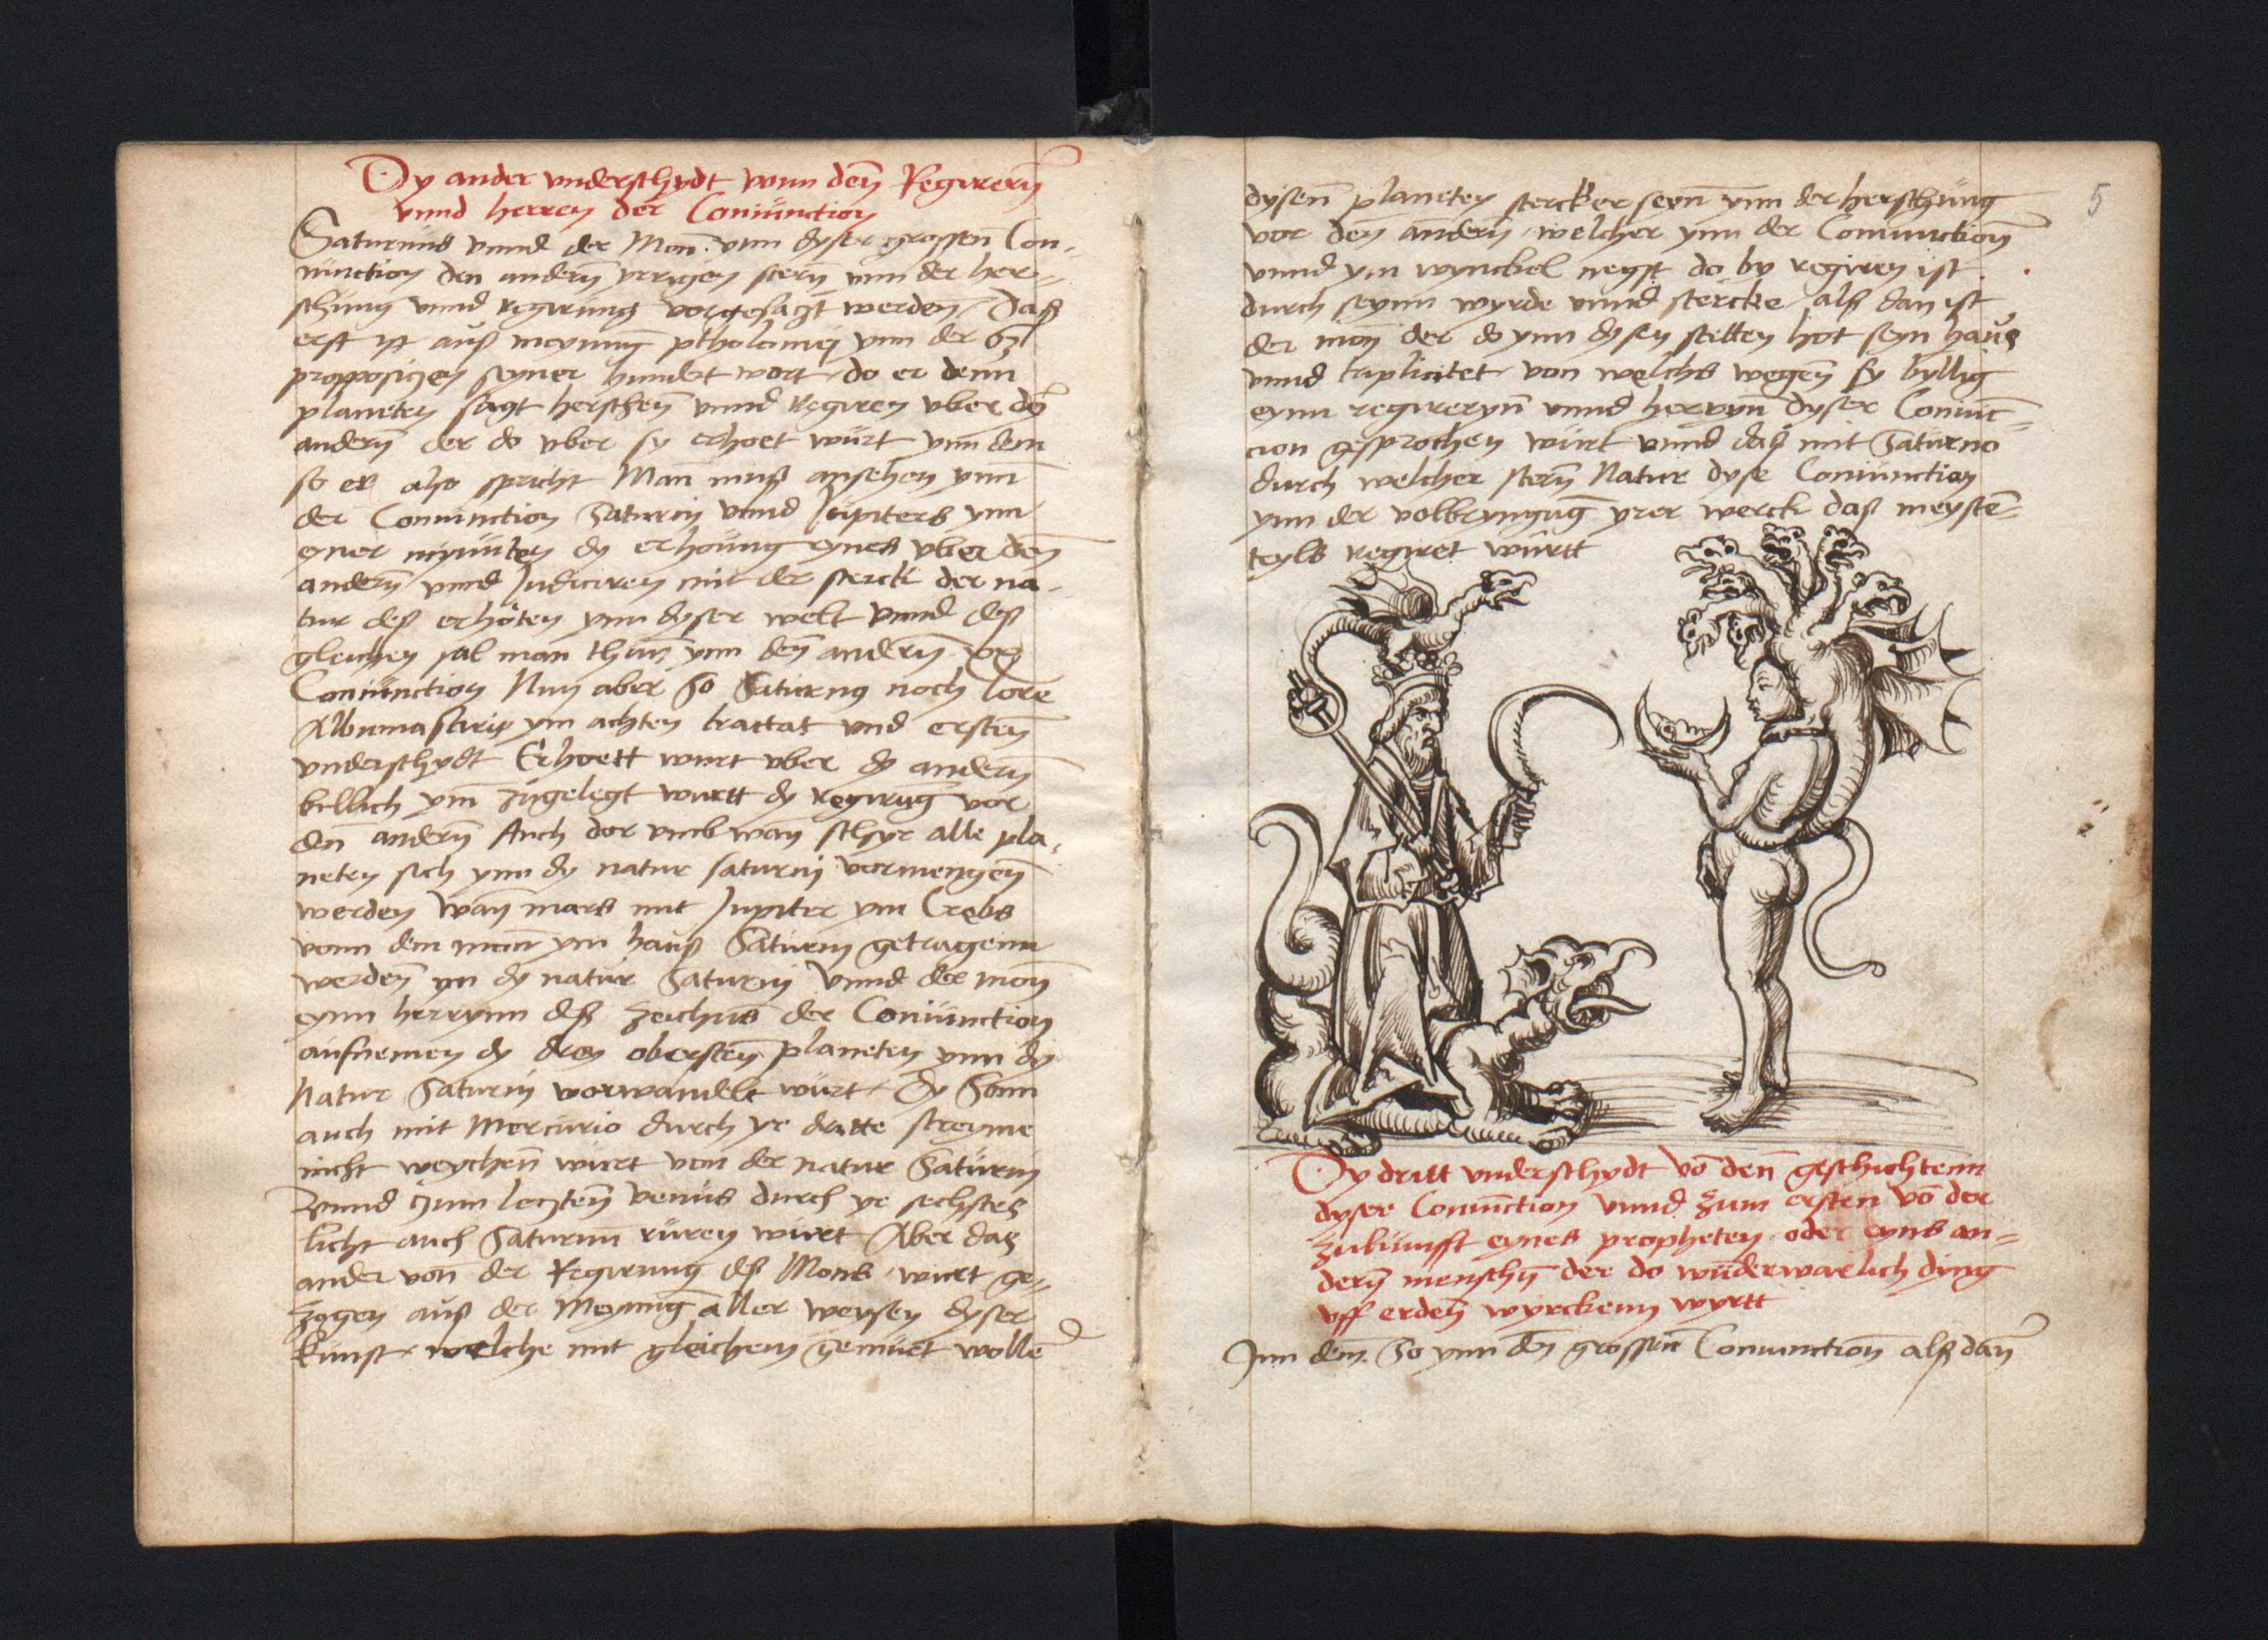 Dy ander vnderschydt vnn denn Regirernn
vnnd herren der Coniunction
Saturnus vnnd der Mon. ynn dyser grossenn Con-
iunction den andernn yrrigen stern ynn der her-
schung vnnd regirung vorgesatzt werden. Daß
erst ist auß meynung ptholomei ynn der
propposicien seyner hundert wort do er denn
planeten sagt herschenn vnnd Regiren vber den
andernn der do vber sy erhoet würt ynn dem
so er also spricht Man muß ansehen ynn
der Coniunction Saturni vnnd Jupiters ynn
eyner mynuten dy erhöung eynes vber denn
andernn vnnd Judiciren mit der sterck der na-
tur deß erhöten ynn dyser welt vnnd deß
gleichen sal man thun ynn denn andernn
Coniunction Nun aber So Saturnus noch lore
Albumasaris ym achten tractat vnd ersten
vnderschydt Erhoett wurt vber dy andern
billich ym zugelegt wurtt dy regirung vor
den andernn Auch dor vmb wan schyr alle pla-
neten sich ynn dy natur saturni vormengenn
werden Wan mars mit Jupiter ym Crebs
vonn dem mon ym hauß Saturni getragenn
werdenn yn dy natur Saturni Vnnd der mon
eynn herrynn deß zeichens der Coniunction
aufnemen dy drey obersten planeten ynn dy
Natur Saturni vorwandelt würt. Dy Sonn
auch mit Mercurio durch yr dritte streyme
nicht weychenn würt von der natur Saturni
Vnnd zum leczten venus durch yr sechstes
licht auch Saturnum rüren würt Aber das
ander von der Regirung deß Mons wirt ge-
zogen auß der Meynung aller weysen dyser
kunst welche mit gleichem gemüet wollen
5
dysenn planeten stercker seyn ynn der herschung
vor den andern welcher ynn der Coniunction
vnnd ym wynckel negst do by regiren ist
durch seynn wyrde vnnd stercke alß dan ist
der mon der do ynn dysen stetten hot seyn haus
vnnd triplicitet von welchs wegenn sy byllig
eynn regirerynn vnnd herrynn dyser Coniunc-
cion gesprochen würt vnnd daß mit Saturno
durch welcher stern Natur dyse Coniunction
ynn der volbryngung yrer werck daß meysten-
teyls regiret württ
Dy dritt vnderschydt von denn geschichtenn
dyser Coniunction vnnd zum ersten von der
zukunfft eynes propheten oder eyns an-
dern menschen der do wunderwarlich dyng
vff erden wyrckenn wyrtt
Inn dem. So ynn den grossen Coniunction alß dan